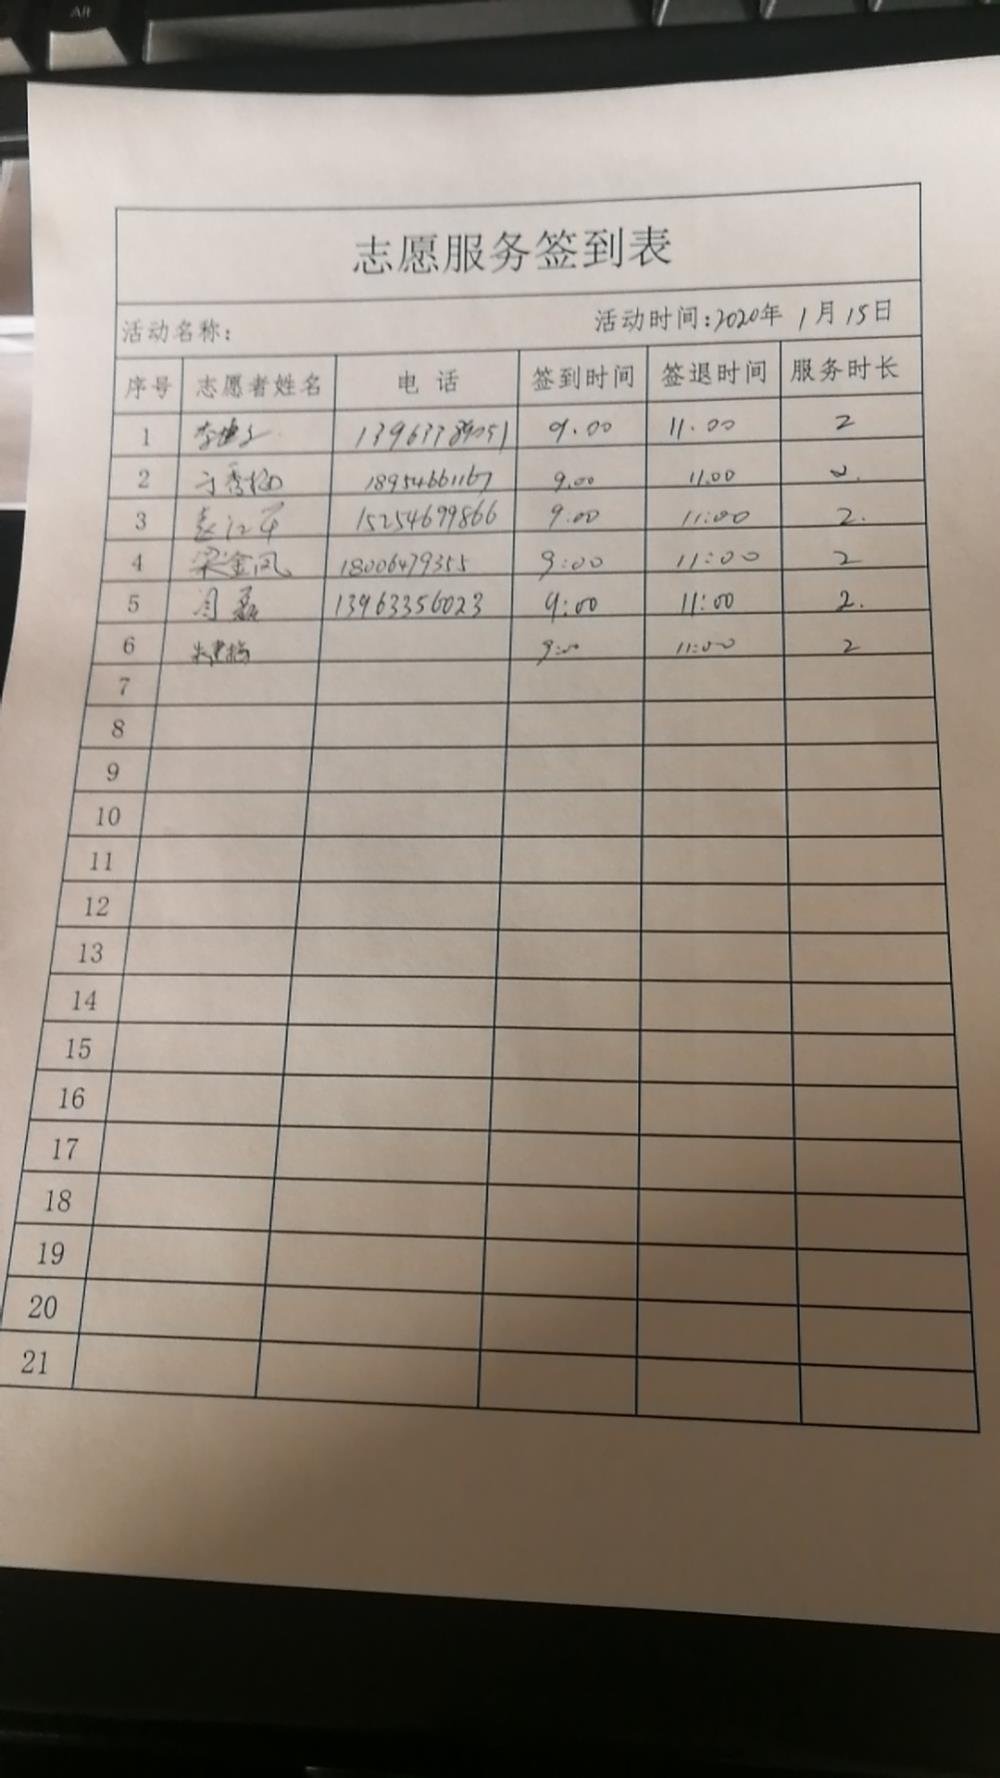 Alt
志愿服务签到表
活动名称: 活动时间:2020年 1月15日
序号 志愿者姓名 电 话 签到时间 签退时间 服务时长
1 9.00 11.00 2
2 于秀梅 18954661167 9.00 11.00 2.
3 15254699866 9:00 11:00 2.
4 梁金凤 18006479355 9:00 11:00 2
5 闫磊 13963356023 9:00 11:00 2.
6 9:00 11:00 2
7
8
9
10
11
12
13
14
15
16
17
18
19
20
21